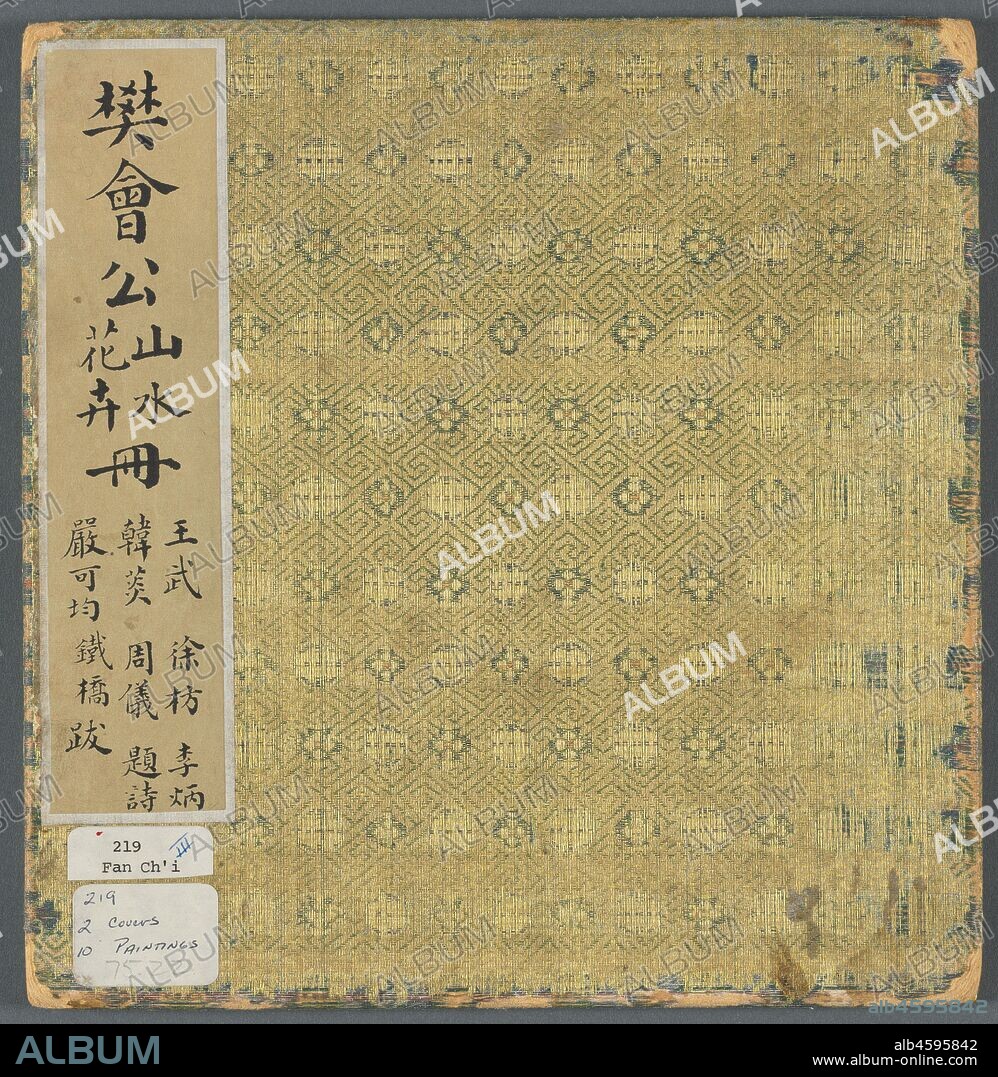 樊會公山水花卉冊
王武 徐枋 李炳
韓菼 周儀 題詩
嚴可均鐵橋跋
219
Fan Ch'i
219
2 Covers
10 Paintings
ALBUM
alb4595842
ALBUM
alb4595842
www.album-online.com